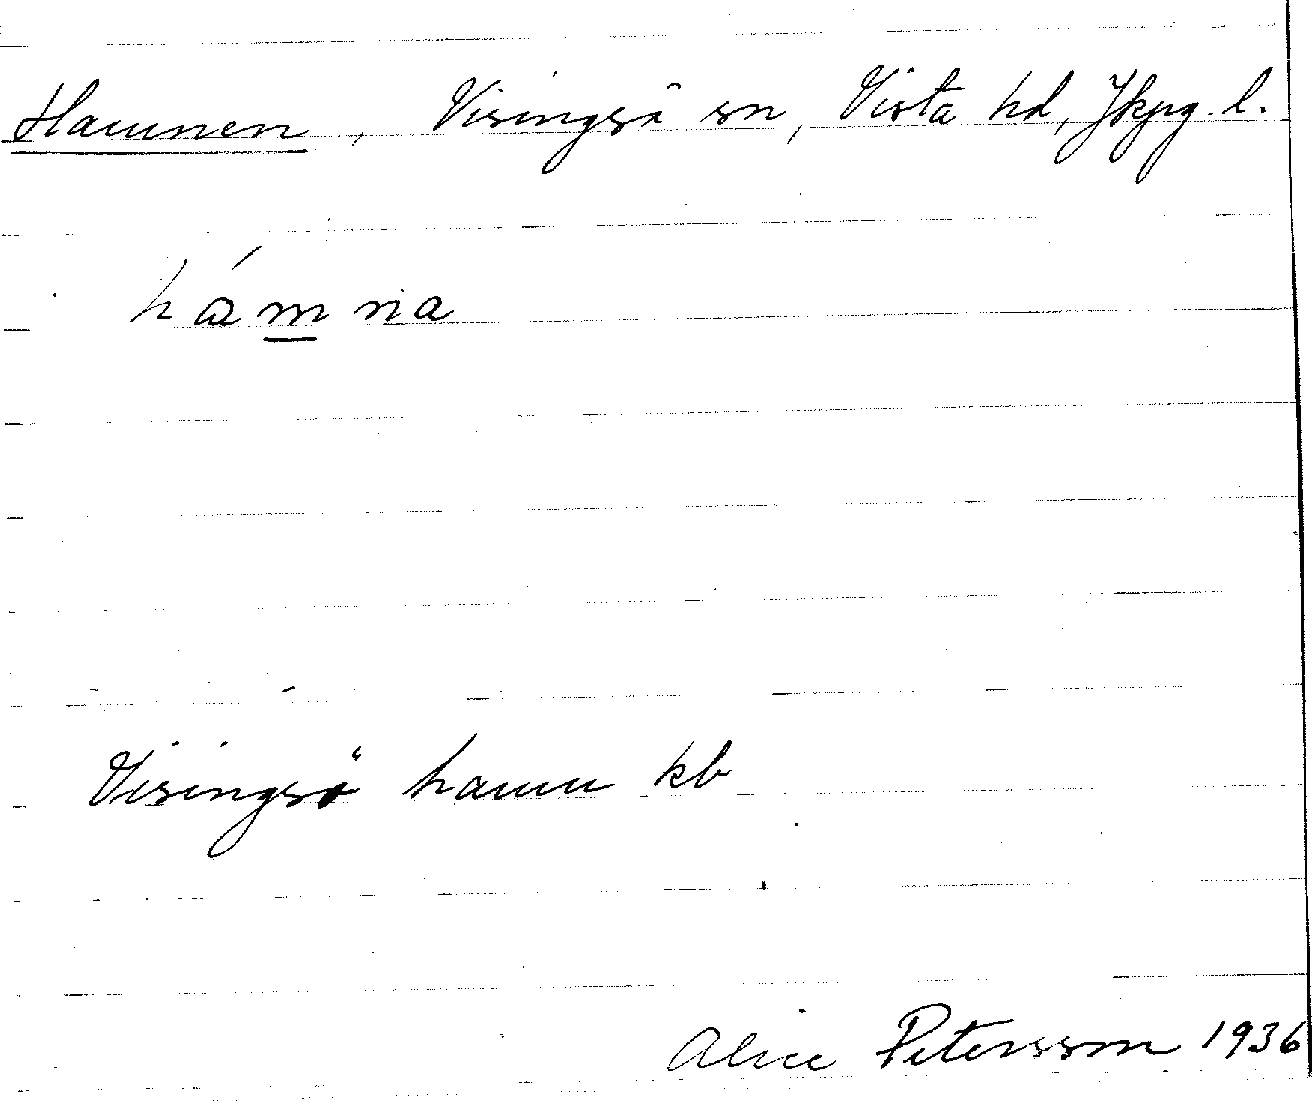 Hamnen, Visingsö sn, Vista hd, Jkpg. l.
hámna
Visingsö hamn kb
Alice Petersson 1936